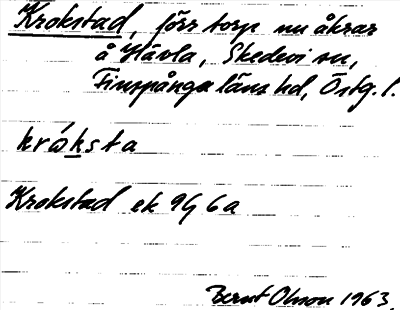 Krokstad, förr torp nu åkrar
å Hävla, Skedevi sn,
Finspånga läns hd, Östg. l.
kró̱ksta
Krokstad ek 9G 6a
Bernt Olsson 1963.